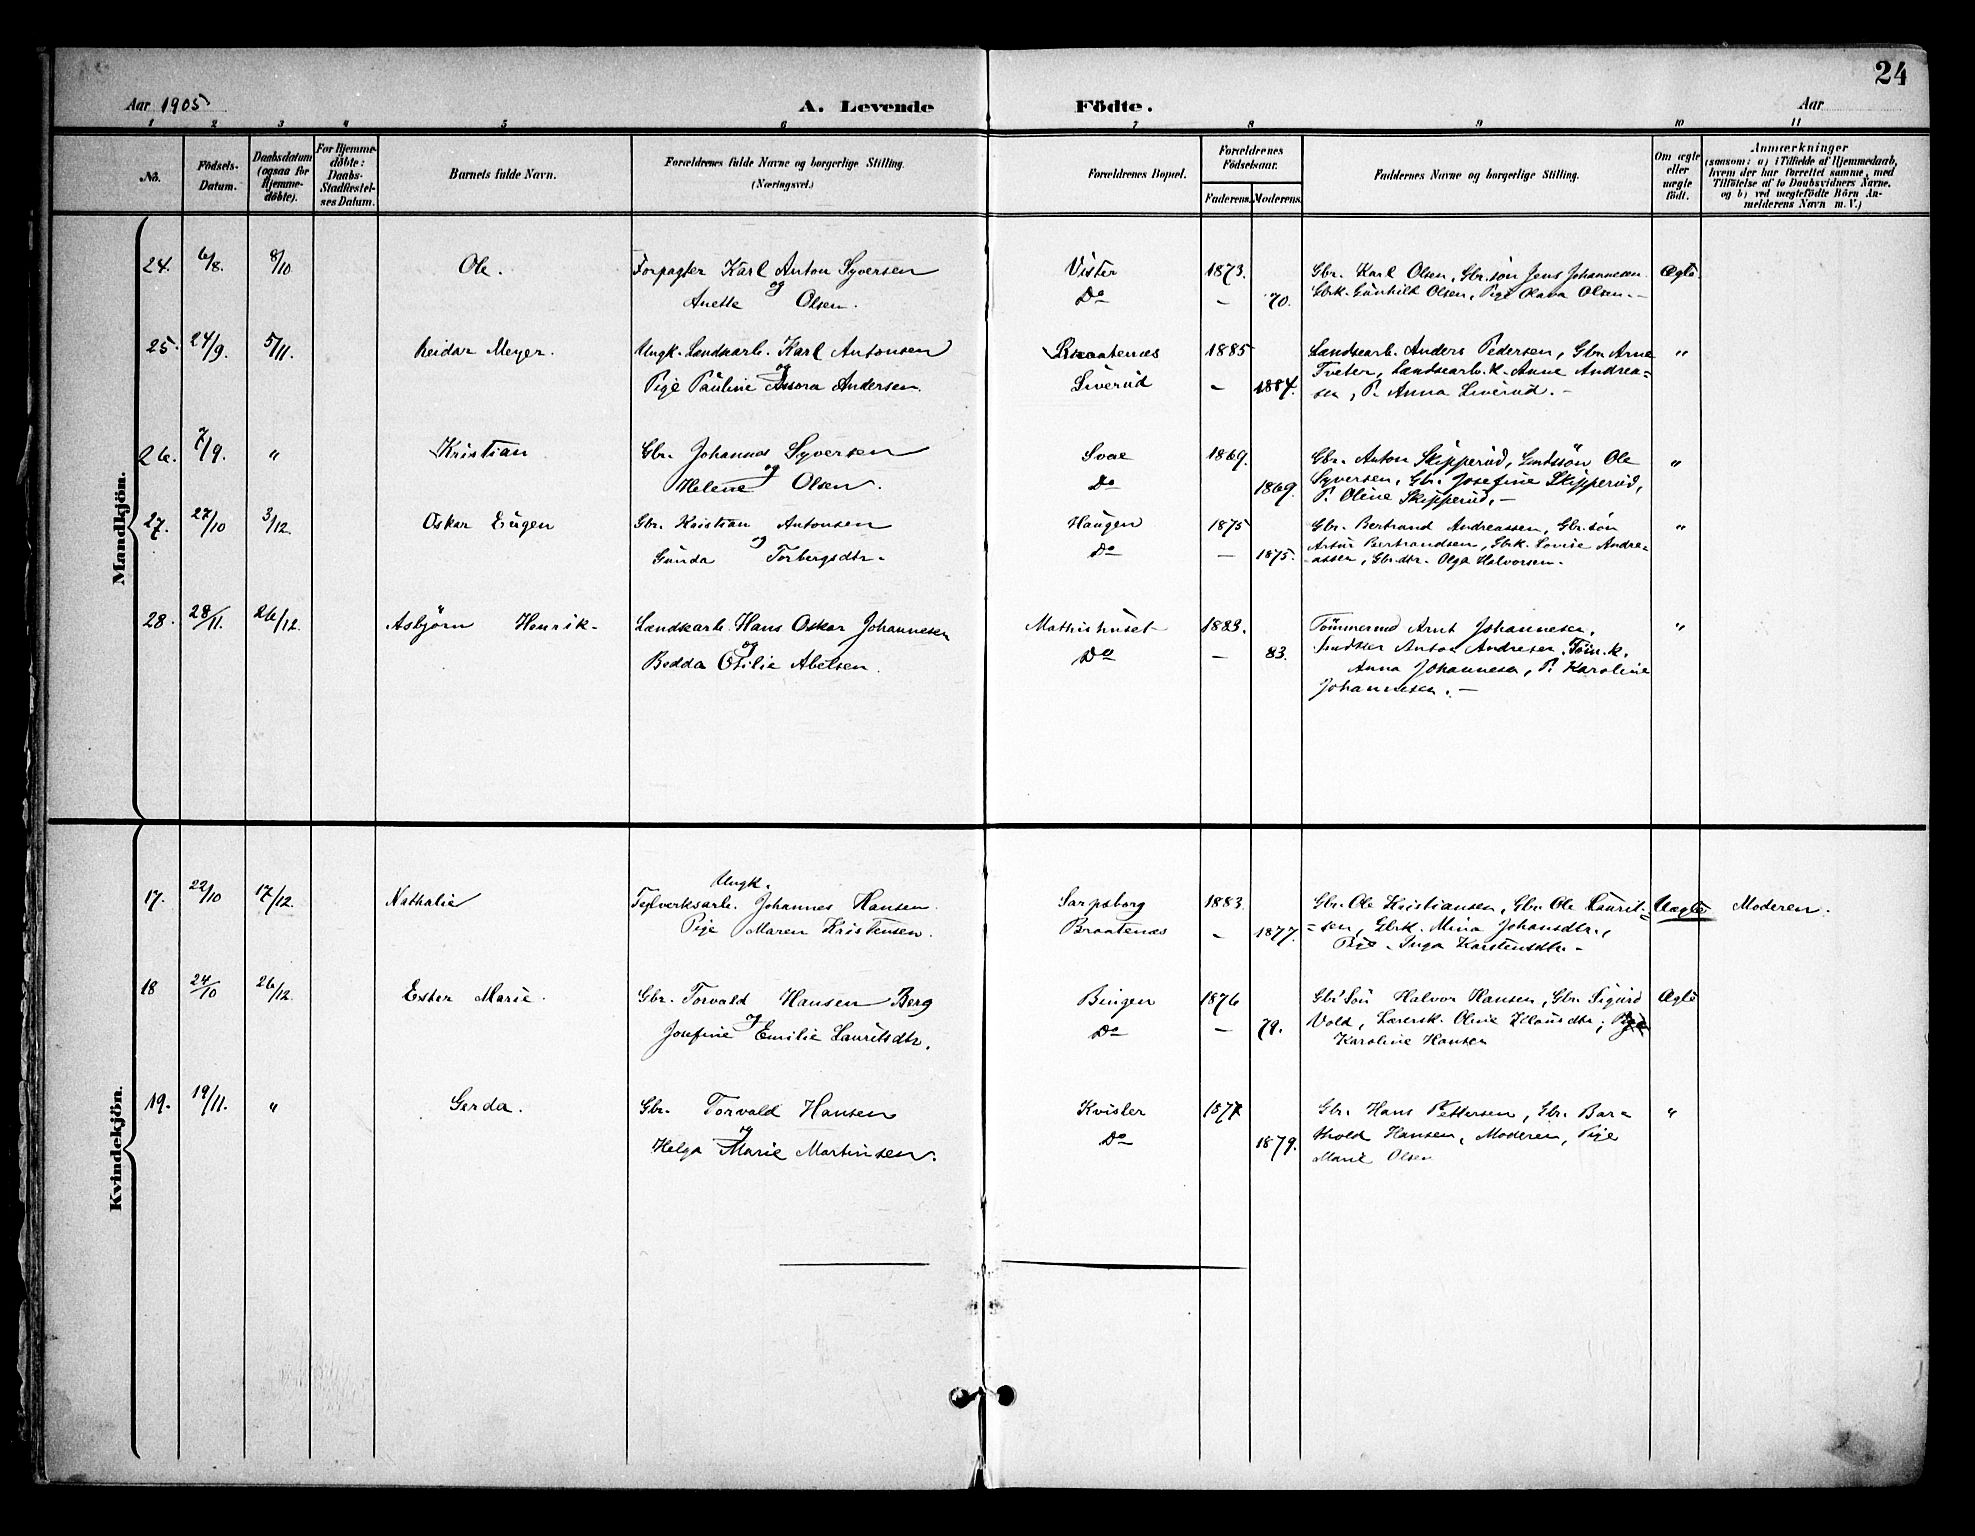 24
Aar 1905 A. Levende Födte. Aar
1 2 3 4 5 6 7 8 9 10 11
No. Födsels-Datum. Daabsdatum (ogsaa for Hjemme-döbte). For Hjemme-döbte: Daabs-Stadfæstel-ses Datum. Barnets fulde Navn. Forældrenes fulde Navne og borgerlige Stilling. (Næringsvei.) Forældrenes Bopæl. Forældrenes Födselsaar. Faderens. Moderens. Faddernes Navne og borgerlige Stilling. Om ægte eller uægte födt. Anmærkninger (saasom: a) i Tilfælde af Hjemmedaab, hvem der har forrettet samme, med Tilföielse af to Daabsvidners Navne, og b) ved uægtefödte Börn An-melderens Navn m. V.)
Mandkjön.
24. 6/8. 8/10 Ole. Forpagter Karl Anton Syversen Vister 1873. Gbr. Karl Olsen, Gbr.sön Jens Johannesen Ægte
og
Anette Olsen. Do — 70. Gbrk. Gunhild Olsen, Pige Olava Olsen. —
25. 24/9. 5/11. Reidar Meyer. Ungk. Landsarb. Karl Antonsen Braatenæs 1885 Landsearb. Anders Pedersen, Gbr. Arne "
og
Pige Pauline Andersen. Siverud — 1884. Tveter, Landsearb.k. Anne Andrea=
sen, P. Anna Siverud. —
26. 7/9. " Kristian Gbr. Johannes Syversen Svae 1869. Gbr. Anton Skipperud, Ole "
og
Helene Olsen. Do 1869. Syversen, Gbr. Josefine Skipperud,
P. Oline Skipperud. —
27. 27/10 3/12. Oskar Eugen Gbr. Kristian Antonsen Haugen 1875 Gbr. Bertrand Andreassen, Gbr.sön "
og
Gunda Torbergsdtr. Do — 1875. Artur Bertrandsen, Gbrk. Lovise Andre=
assen, Gbr.dtr. Olga Halvorsen.
28. 28/11. 26/12. Asbjörn Henrik. Landsarb. Hans Oskar Johannesen Mathishuset 1883. Tömmermd Arnt Johannesen, "
og
Bedda Otilie Abelsen. Do — 83. Anton Andresen, Töm.k.
Anna Johannesen, P. Karoline
Johannesen. —
Kvindekjön.
Ungk.
17. 22/10 17/12. Nathalie Teglverksarb. Johannes Hansen. Sarpsborg 1883. Gbr. Ole Kristiansen, Gbr. Ole Laurit= Uægte Moderen.
Pige Maren Kristensen. Braatenæs — 1877. =sen, Gbrk. Mina Johansdtr.,
Pige Inga Karstensdtr. —
18 24/10 26/12. Ester Marie. Gbr. Torvald Hansen Berg Bingen 1876 Gbr. Sön Halvor Hansen, Gbr. Sigurd Ægte
og
Josefine Emilie Lauritsdtr. Do — 79. Vold, Lærersk. Oline Klausdtr, Pige
Karoline Hansen
19. 19/11. " Gerda. Gbr. Torvald Hansen Kvister 1877 Gbr. Hans Pettersen, Gbr. Bar= "
og
Helga Marie Martinsen. Do 1879. thold Hansen, Moderen, Pige
Marie Olsen